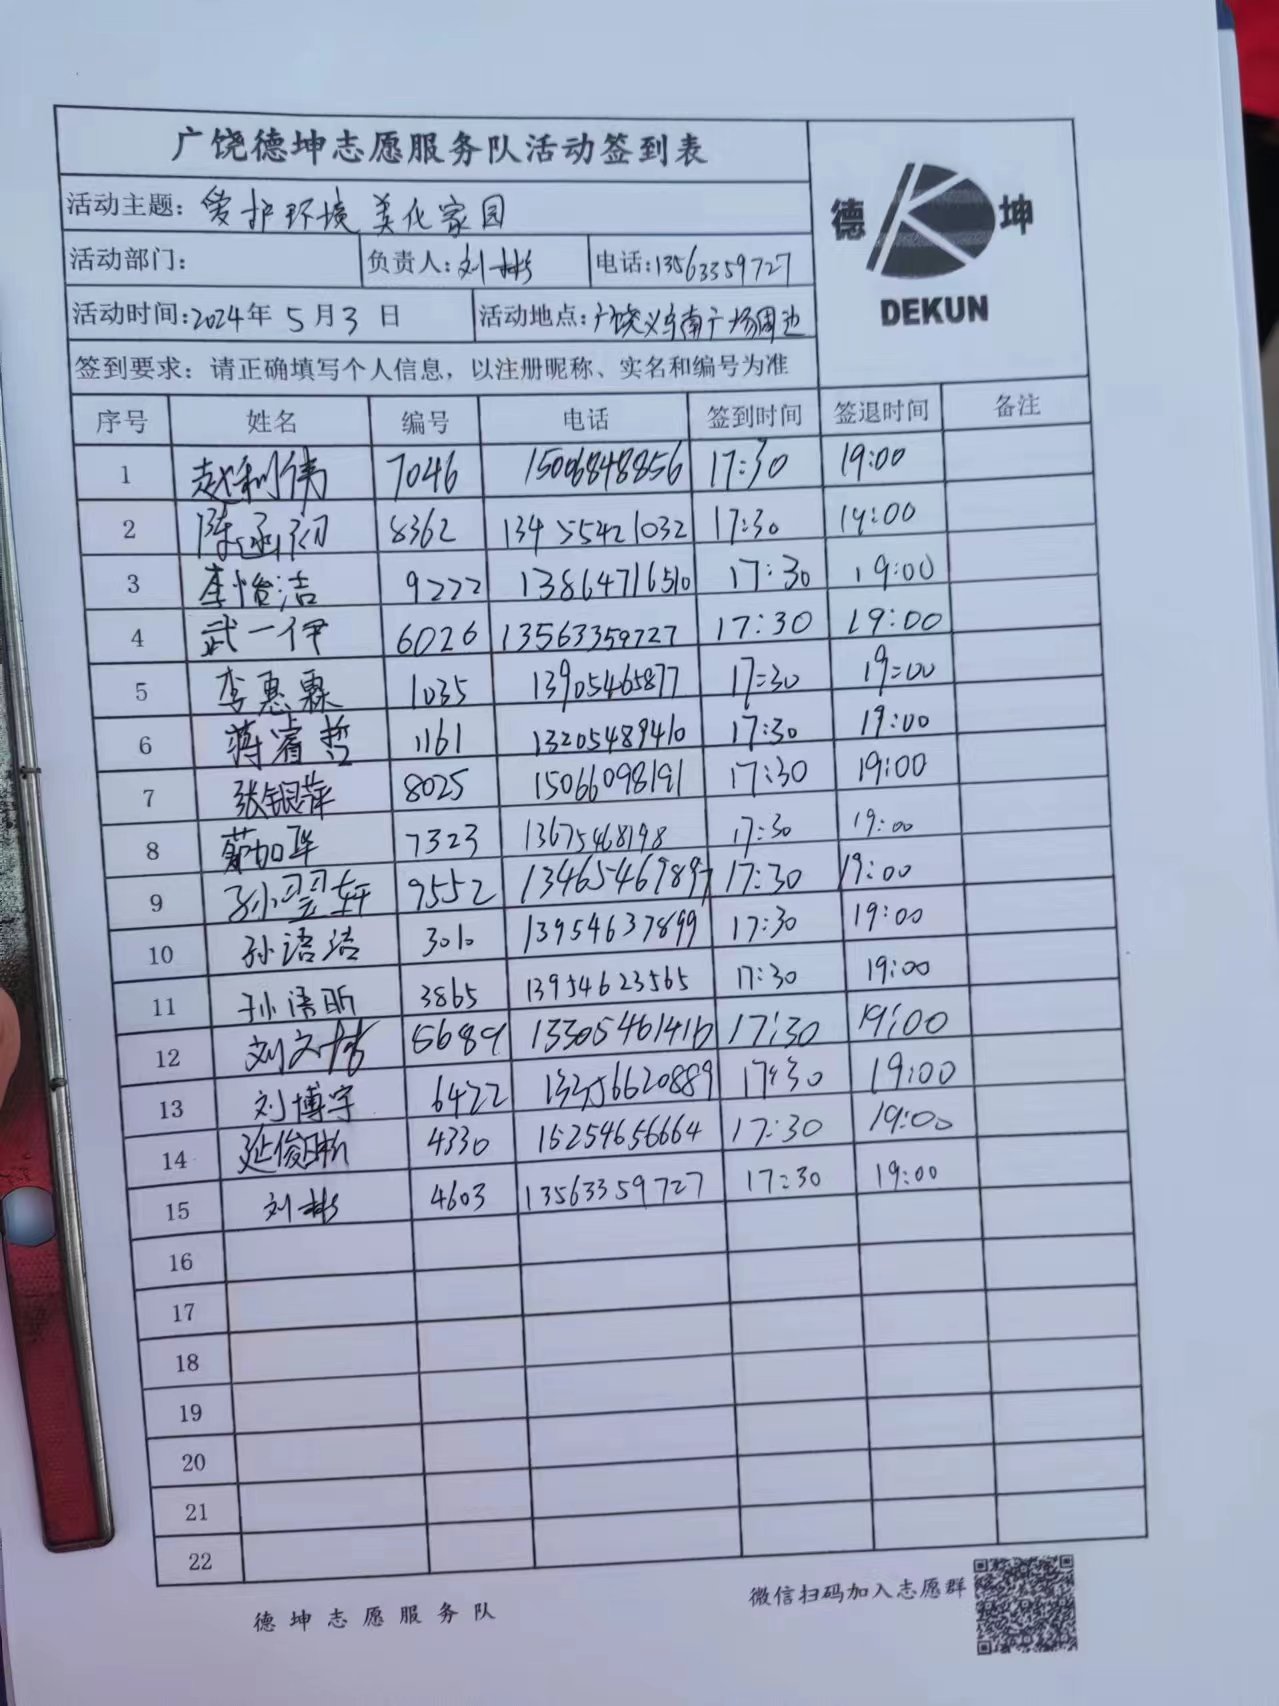 广饶德坤志愿服务队活动签到表
德 坤
DEKUN
活动主题：爱护环境 美化家园
活动部门： 负责人：刘彬 电话：13563359727
活动时间：2024年 5月3日 活动地点：广饶义乌南广场周边
签到要求：请正确填写个人信息，以注册昵称、实名和编号为准
序号 姓名 编号 电话 签到时间 签退时间 备注
1 赵利伟 7046 15006848856 17:30 19:00
2 8362 13455421032 17:30 19:00
3 李怡洁 9222 13864716510 17:30 19:00
4 武一伊 6026 13563359727 17:30 19:00
5 李惠霖 1035 13905465877 17:30 19:00
6 蒋睿哲 1161 13205489410 17:30 19:00
7 张银萍 8025 15066098191 17:30 19:00
8 7323 13675468198 17:30 19:00
9 孙翌轩 9552 13465467897 17:30 19:00
10 孙语洁 3010 13954637899 17:30 19:00
11 孙语昕 3865 13954623565 17:30 19:00
12 17:30 19:00
13 刘博宇 6422 17:30 19:00
14 4330 15254656664 17:30 19:00
15 刘彬 4603 13563359727 17:30 19:00
16
17
18
19
20
21
22
德坤志愿服务队
微信扫码加入志愿群